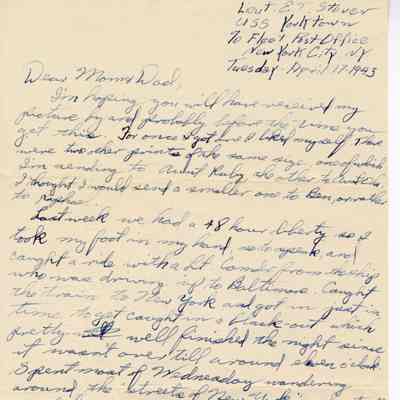 Lieut. E. T. Stover
USS Yorktown
To Fleet Post Office
New York City, NY
Tuesday - April 17 - 1943
Dear Mom & Dad,
I'm hoping you will have received my
picture by and probably before the time you
get this. For once I got one I liked myself. There
were two other prints of the same size, one of which
I'm sending to Aunt Ruby, the other to Aunt
I thought I would send a smaller one to Ben, or rather
to
Last week we had a 48 hour liberty so I
took my foot in my hand, so to speak, and
caught a ride with a Lt. Comdr. from the ship
who was driving up to Baltimore. Caught
the train to New York and got in just in
time to get caught in a black-out which
pretty well finished the night since
it wasn't over till around eleven o'clock.
Spent most of Wednesday wandering
around the "streets of New York"